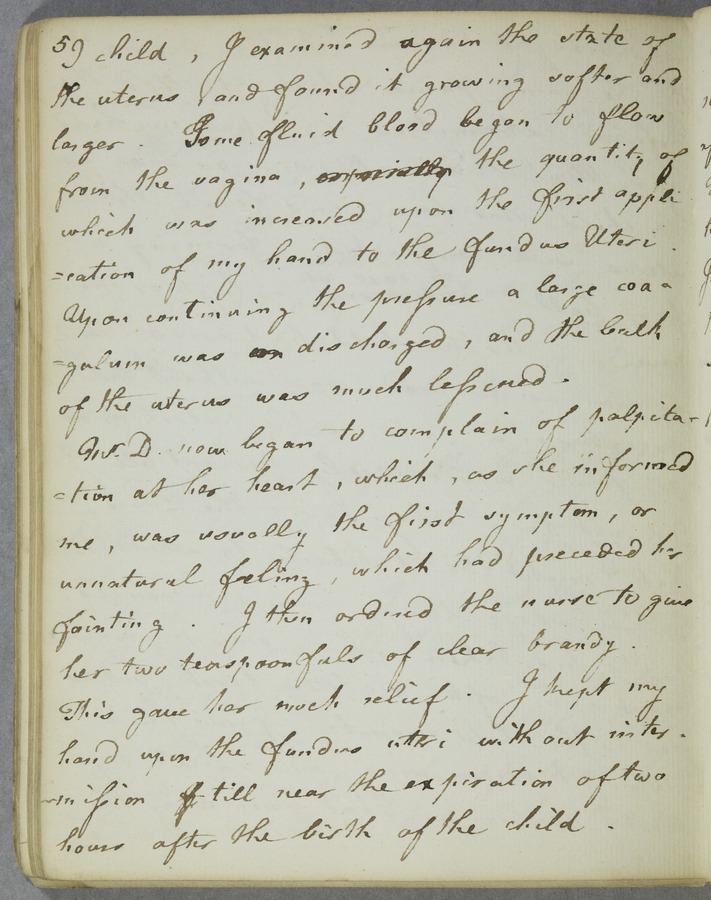 59 child, I examined again the state of
the uterus, and found it growing softer and
larger. Some fluid blood began to flow
from the vagina, especially the quantity of
which was increased upon the first appli
=cation of my hand to the fundus Uteri.
Upon continuing the pressure a large coa=
=gulum was discharged, and the bulk
of the uterus was much lessened.
Mrs. D. now began to complain of palpita-
=tion at her heart, which, as she informed
me, was usually the first symptom, or
unnatural feeling, which had preceded her
fainting. I then ordered the nurse to give
her two teaspoonfuls of clear brandy.
This gave her much relief. I kept my
hand upon the fundus uteri without inter-
-mission till near the expiration of two
hours after the birth of the child.